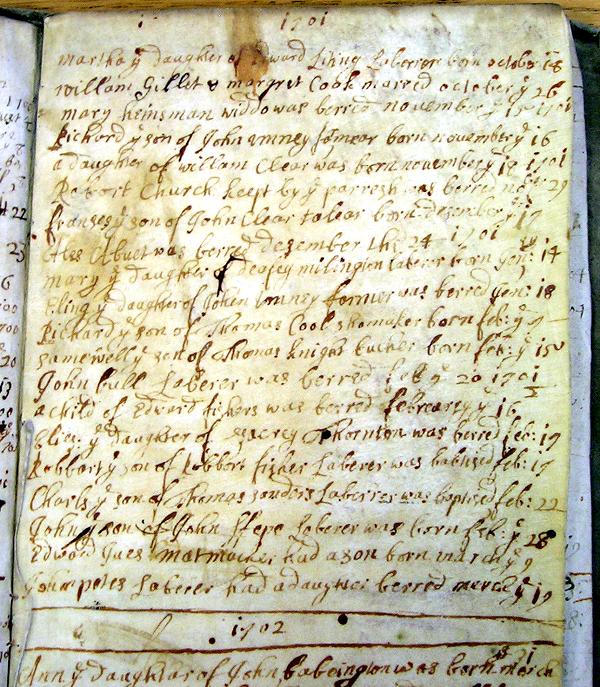 1701
martha y daughter of Edward Liting Laberer born october 18
william Gillet & margret Cook marred october y 26
mary heinsman widdo was berred november y 15 1701
Richord y son of John Imney farmear born november y 16
a daughter of william Clear was born november y 18 1701
Robort Church keept by y parresh was berred no 29
franses y son of John Clear talear born desember y 17
Ales was berred desember the 24 1701
mary y daughter of milington laberer born gen: 14
Eling y daughter of John Imney former was berred gen: 18
Richard y son of Thomas Cook shomaker born feb: y 9
samewell y son of Thomas knight bucher born feb: y 15
John bull Laberer was berred feb y 20 1701
a child of Edward fishers was berred febrearry y 16
Eliz: y daughter of Thornton was berred feb: 19
Robbart y son of Robbort fisher Laberer was babtised feb: 19
Charls y son of Thomas sonders Laberrer was baptised feb: 22
John y son of John Laberer was born feb: y 28
Edword Jues matmaker had a son born march y 9
John petes Laberer had a daughter berred march y 19
1702
Ann y daughter of John babington was born march